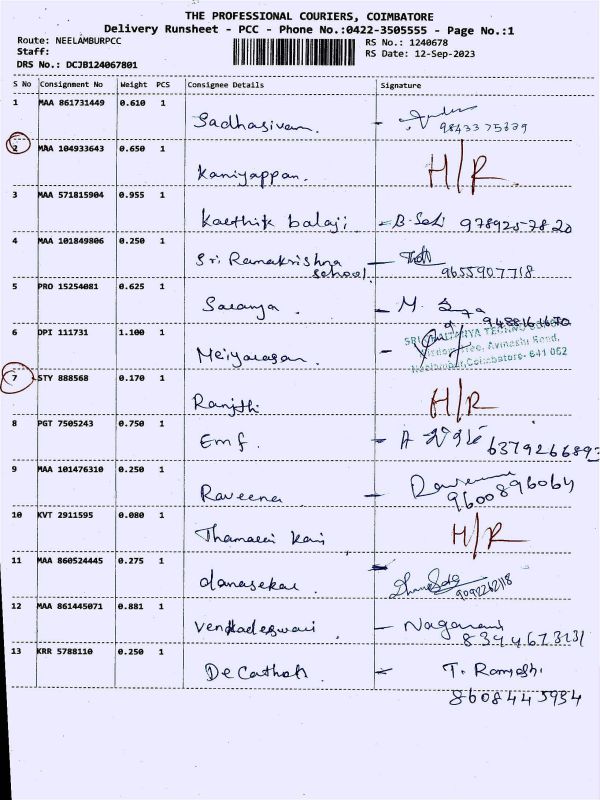 THE PROFESSIONAL COURIERS, COIMBATORE
Delivery Runsheet - PCC - Phone No.:0422-3505555 - Page No.:1
Route: NEELAMBURPCC
RS No.: 1240678
Staff:
RS Date: 12-Sep-2023
DRS No.: DCJB124067801
S No Consignment No Weight PCS Consignee Details Signature
1 MAA 861731449 0.610 1 Sadhasivam. -
9843375339
2 MAA 104933643 0.650 1 Kaniyappan. H/R
3 MAA 571815904 0.955 1 Karthik balaji. - 978925-7820
4 MAA 101849806 0.250 1 Sri Ramakrishna school. -
9655907718
5 PRO 15254081 0.625 1 Saranya. - M.
6 DPI 111731 1.100 1 Meiyarasan. -
Avinashi Road,
Neelambur, Coimbatore- 641 062
7 STY 888568 0.170 1 Ranjith H/R
8 PGT 7505243 0.750 1 Emf. - A
6379266893
9 MAA 101476310 0.250 1 Raveena. -
9600896064
10 KVT 2911595 0.080 1 H/R
11 MAA 860524445 0.275 1 danasekar -
9092262118
12 MAA 861445071 0.881 1 -
8344673131
13 KRR 5788110 0.250 1 Decathlon. -
8608445934